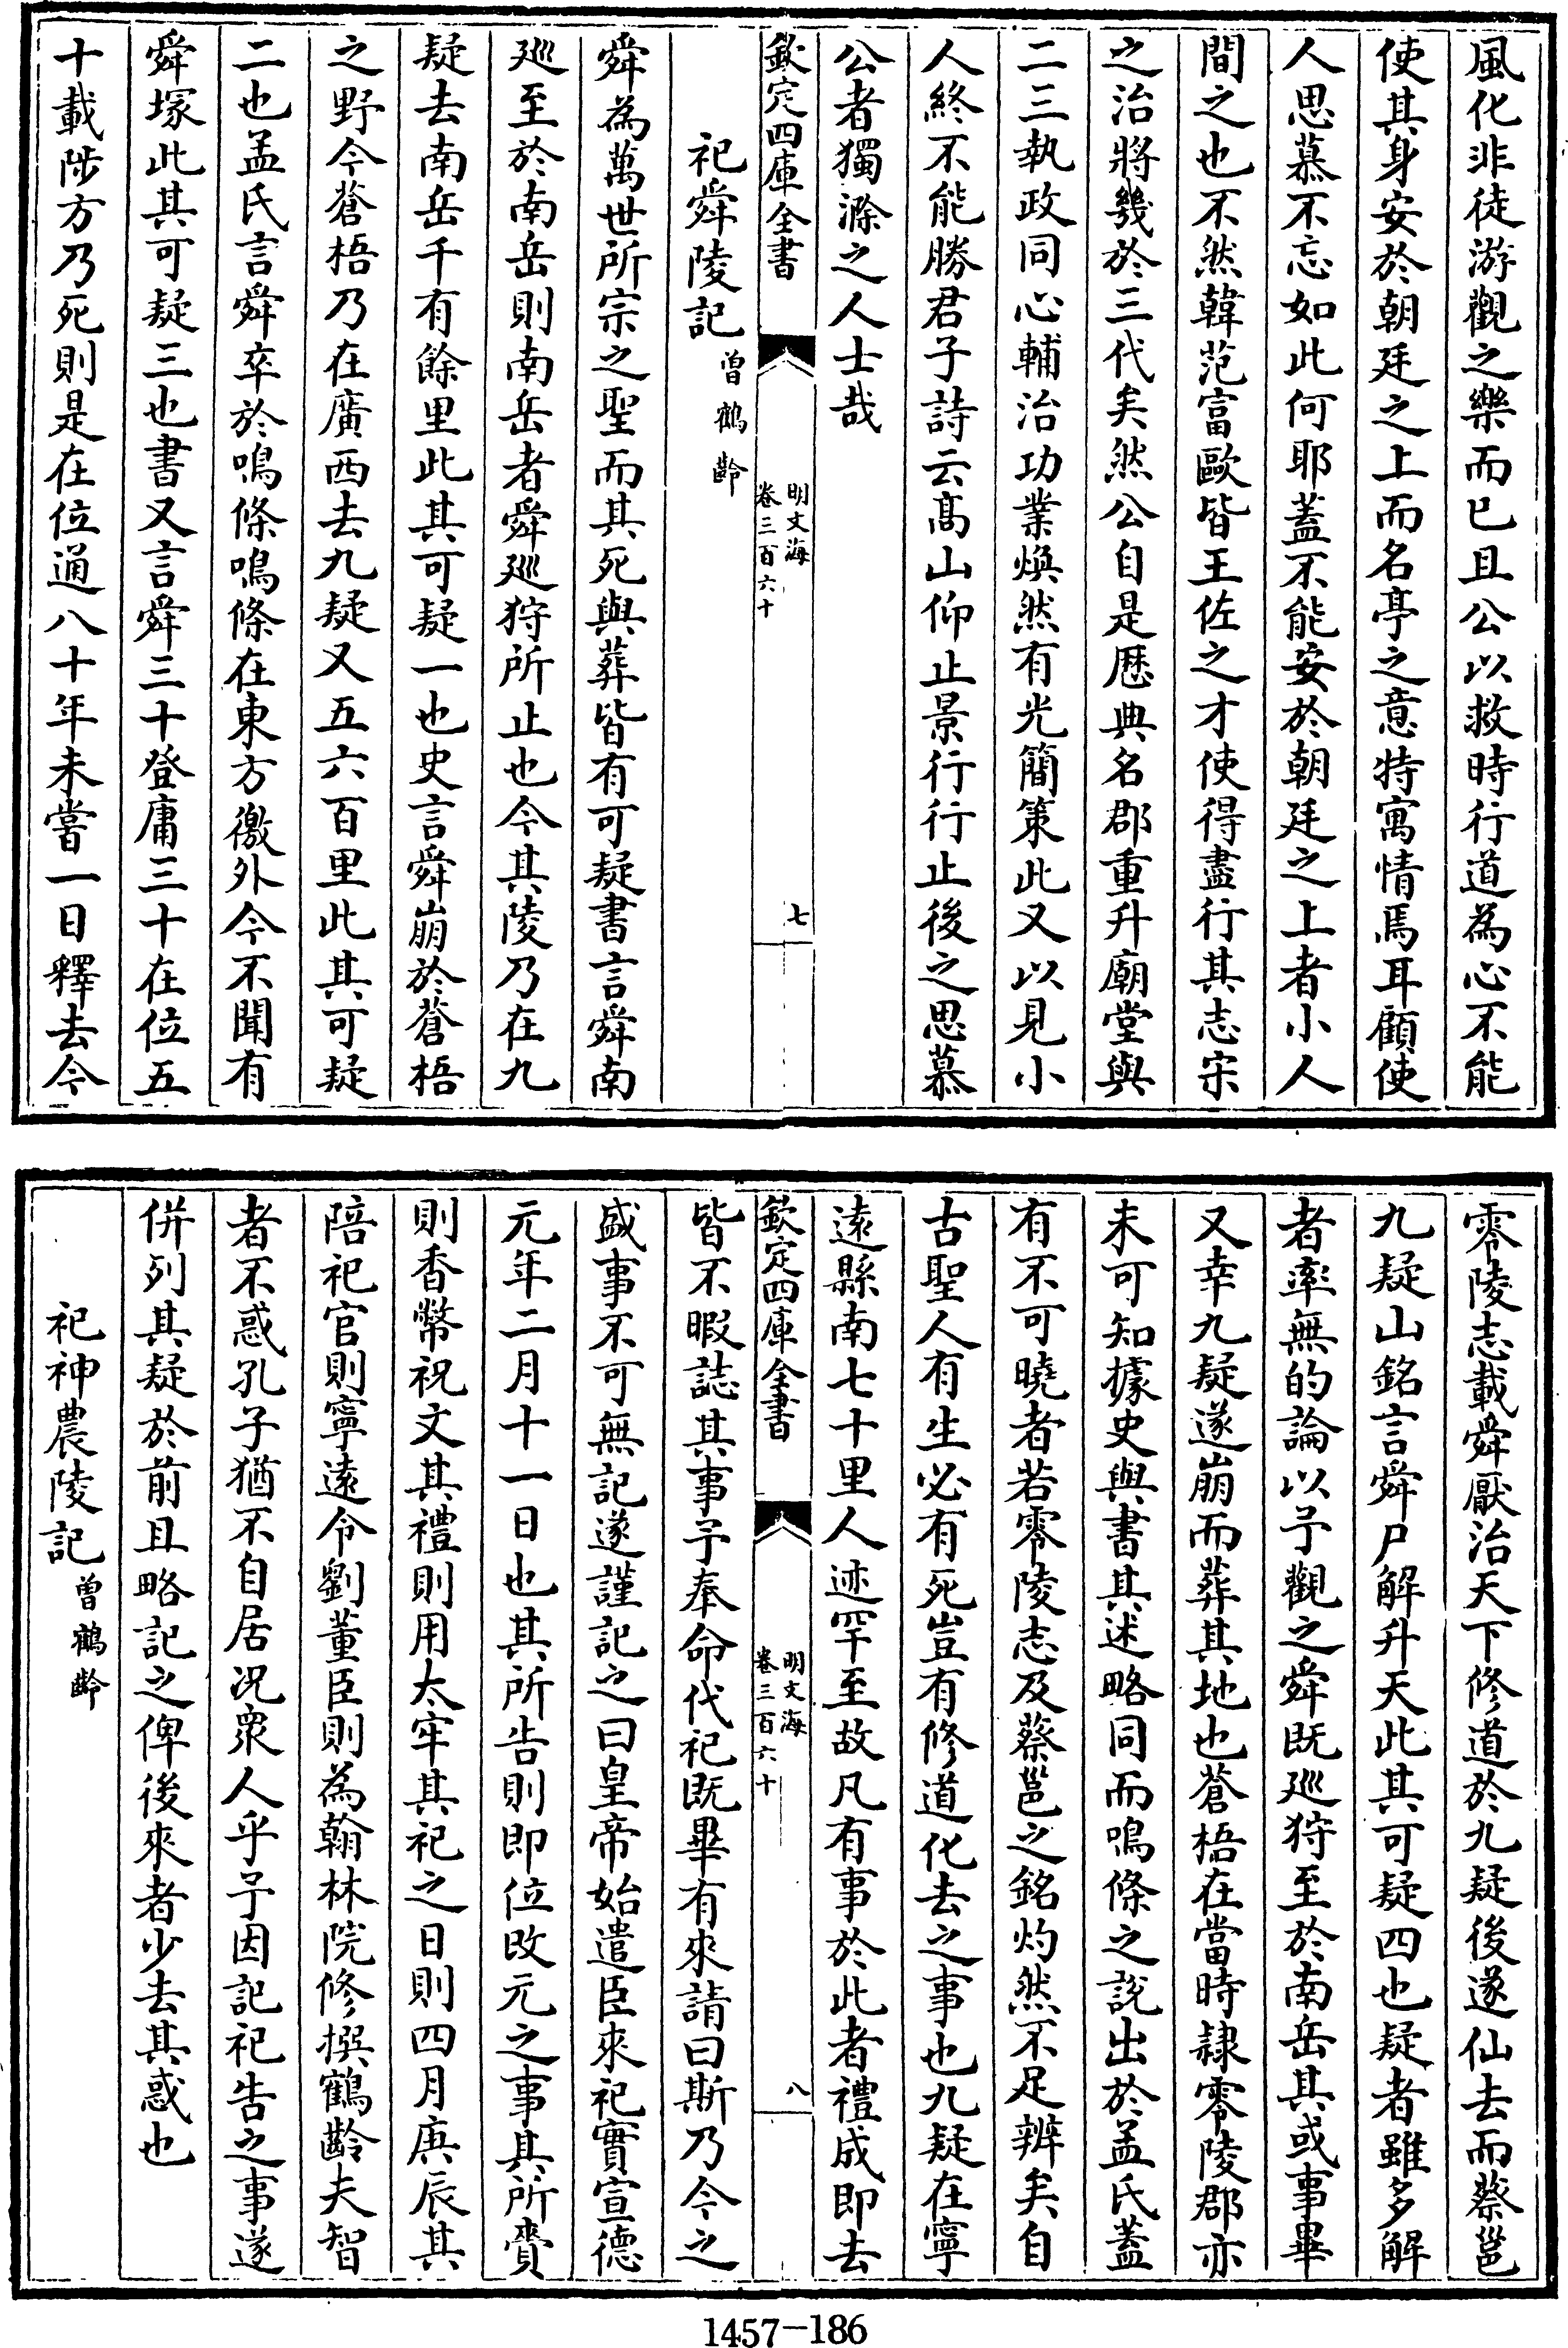 風化非徒游觀之樂而已且公以救時行道為心不能
使其身安於朝廷之上而名亭之意特寓情焉耳顧使
人思慕不忘如此何耶蓋不能安於朝廷之上者小人
間之也不然韓范富歐皆王佐之才使得盡行其志宋
之治將幾於三代矣然公自是歴典名郡重升廟堂與
二三執政同心輔治功業煥然有光簡策此又以見小
人終不能勝君子詩云高山仰止景行行止後之思慕
公者獨滁之人士哉
欽定四庫全書
明文海
卷三百六十
七
祀舜陵記 曾鶴齡
舜為萬世所宗之聖而其死與葬皆有可疑書言舜南
廵至於南岳則南岳者舜廵狩所止也今其陵乃在九
疑去南岳千有餘里此其可疑一也史言舜崩於蒼梧
之野今蒼梧乃在廣西去九疑又五六百里此其可疑
二也孟氏言舜卒於鳴條鳴條在東方徼外今不聞有
舜塚此其可疑三也書又言舜三十登庸三十在位五
十載陟方乃死則是在位通八十年未嘗一日釋去今
零陵志載舜厭治天下修道於九疑後遂仙去而蔡邕
九疑山銘言舜尸解升天此其可疑四也疑者雖多解
者率無的論以予觀之舜既廵狩至於南岳其或事畢
又幸九疑遂崩而葬其地也蒼梧在當時隷零陵郡亦
未可知據史與書其述略同而鳴條之説出於孟氏蓋
有不可曉者若零陵志及蔡邕之銘灼然不足辨矣自
古聖人有生必有死豈有修道化去之事也九疑在寧
逺縣南七十里人迹罕至故凡有事於此者禮成即去
欽定四庫全書
明文海
卷三百六十
八
皆不暇誌其事予奉命代祀既畢有來請曰斯乃今之
盛事不可無記遂謹記之曰皇帝始遣臣來祀實宣徳
元年二月十一日也其所告則即位改元之事其所賫
則香幣祝文其禮則用太牢其祀之日則四月庚辰其
陪祀官則寧逺令劉董臣則為翰林院修撰鶴齡夫智
者不惑孔子猶不自居况衆人乎予因記祀告之事遂
併列其疑於前且略記之俾後來者少去其惑也
祀神農陵記 曾鶴齡
1457-186